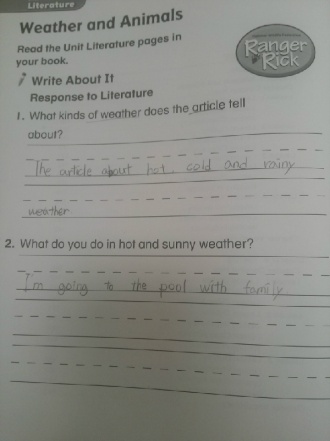 Literature
Weather and Animals
Read the Unit Literature pages in
your book.
Ranger
Rick
Write About It
Response to Literature
1. What kinds of weather does the article tell
about?
The article about hot, cold and rainy
weather
2. What do you do in hot and sunny weather?
I'm going to the pool with family